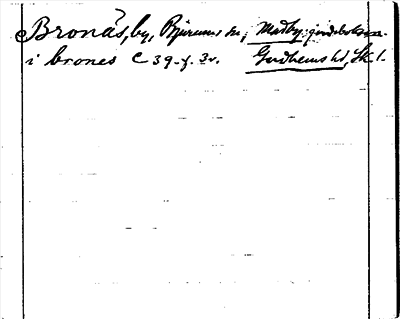 Bronäs, by, Bjurums sn, Medby: jordeboksn.
i brones C 39. f. 3v. Gudhems hd, Sk. l.